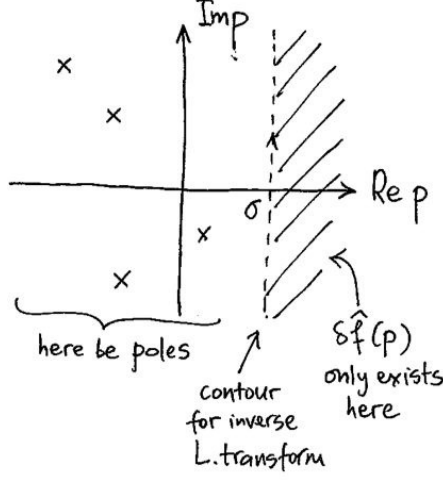 Im p
Re p
σ
here be poles
contour
for inverse
L. transform
δf̂(p)
only exists
here